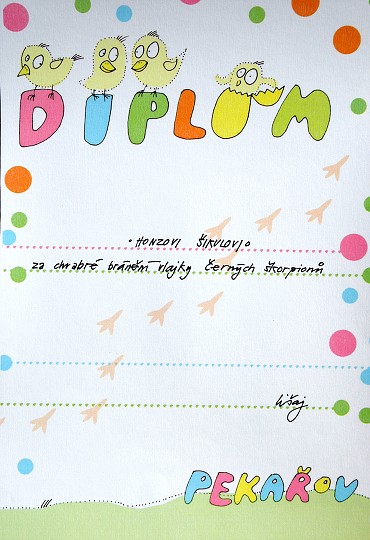 DIPLOM
• HONZOVI ŠIKULOVI •
za chrabré bránění vlajky černých škorpionů
Lišaj
PEKAŘOV